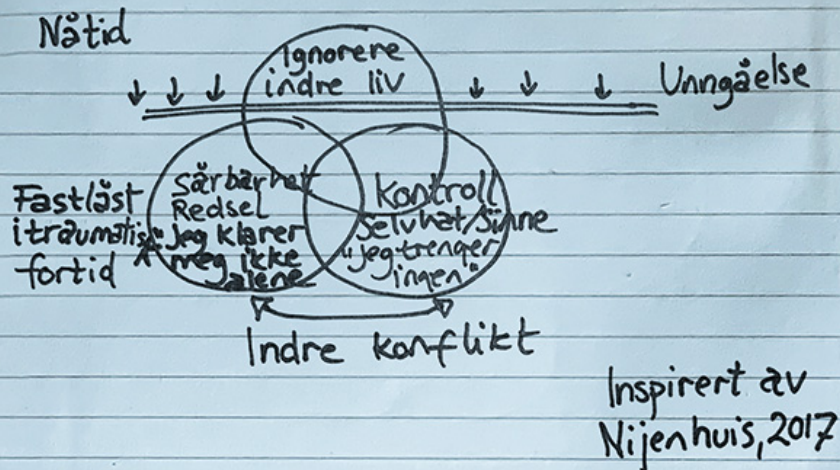 Nåtid
Ignorere
indre liv
Unngåelse
Fastlåst
i traumatisk
fortid
Sårbarhet
Redsel
"Jeg klarer
meg ikke
alene
Kontroll
Selvhat/Sinne
"jeg trenger
ingen"
Indre konflikt
Inspirert av
Nijenhuis, 2017